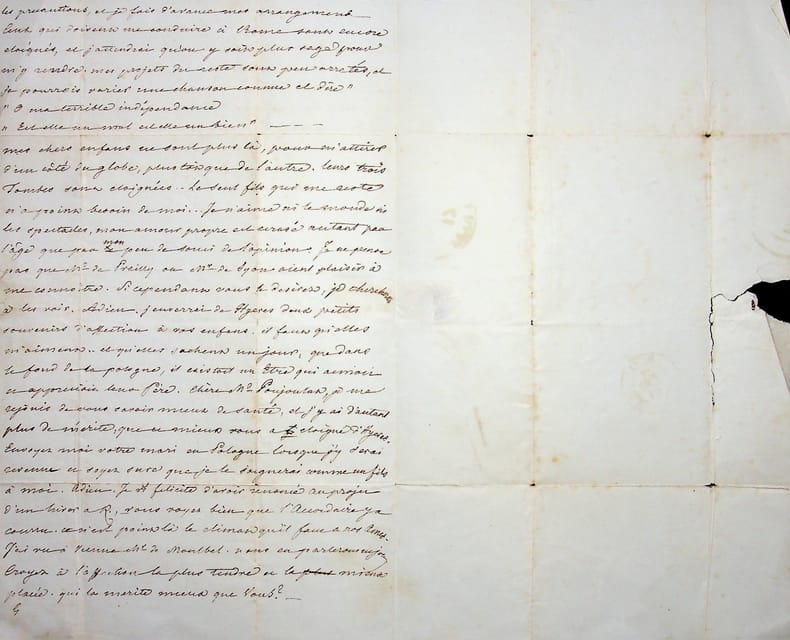 les précautions, et je fais d'avance mes arrangements
Ceux qui doivent me conduire à Rome sont encore
éloignés, et j'attendrai qu'on y soit plus sage pour
m'y rendre. mes projets du reste sont peu arrêtés, et
je pourrois varier une chanson connue et dire "
" O ma terrible indépendance
" Est elle un mal est elle un bien" — — —
mes chers enfans ne sont plus là, pour m'attirer
d'un côté du globe, plustôt que de l'autre. leurs trois
Tombes sont éloignées.. Le seul fils qui me reste
n'a point besoin de moi... Je n'aime ni le monde ni
les spectacles, mon amour propre est écrasé autant par
l'âge que par mon peu de souci de l'opinion. Je ne pense
pas que Mr. de Preilly ou Mr. de Syon aient plaisir à
me connoître. Si cependant vous le desirez, je chercherai
à les voir. Adieu. j'enverrai de Hyeres deux petits
souvenirs d'affection à vos enfans. il faut qu'elles
m'aiment.. et qu'elles sachent un jour, que dans
le fond de la pologne, il existoit un Etre qui aimoit
et apprécioit leur Père. Chère Me. Poujoulat, je me
rejouis de vous savoir mieux de santé, et j'y ai d'autant
plus de mérite, que ce mieux vous a éloigné d'Hyeres.
Envoyez moi votre mari en Pologne lorsque j'y serai
revenue et soyez sure que je le soignerai comme un fils
à moi. Adieu. Je felicite d'avoir renoncé au projet
d'un hiver à R, vous voyez bien que l'Accordaire y a
couru. ce n'est point là le climat qu'il faut à vos
J'ai vu à Vienne Mr. de Montbel. nous en parlerons
Croyez à l'affection la plus tendre et la plus mieux
placée. qui la merite mieux que Vous? —
G